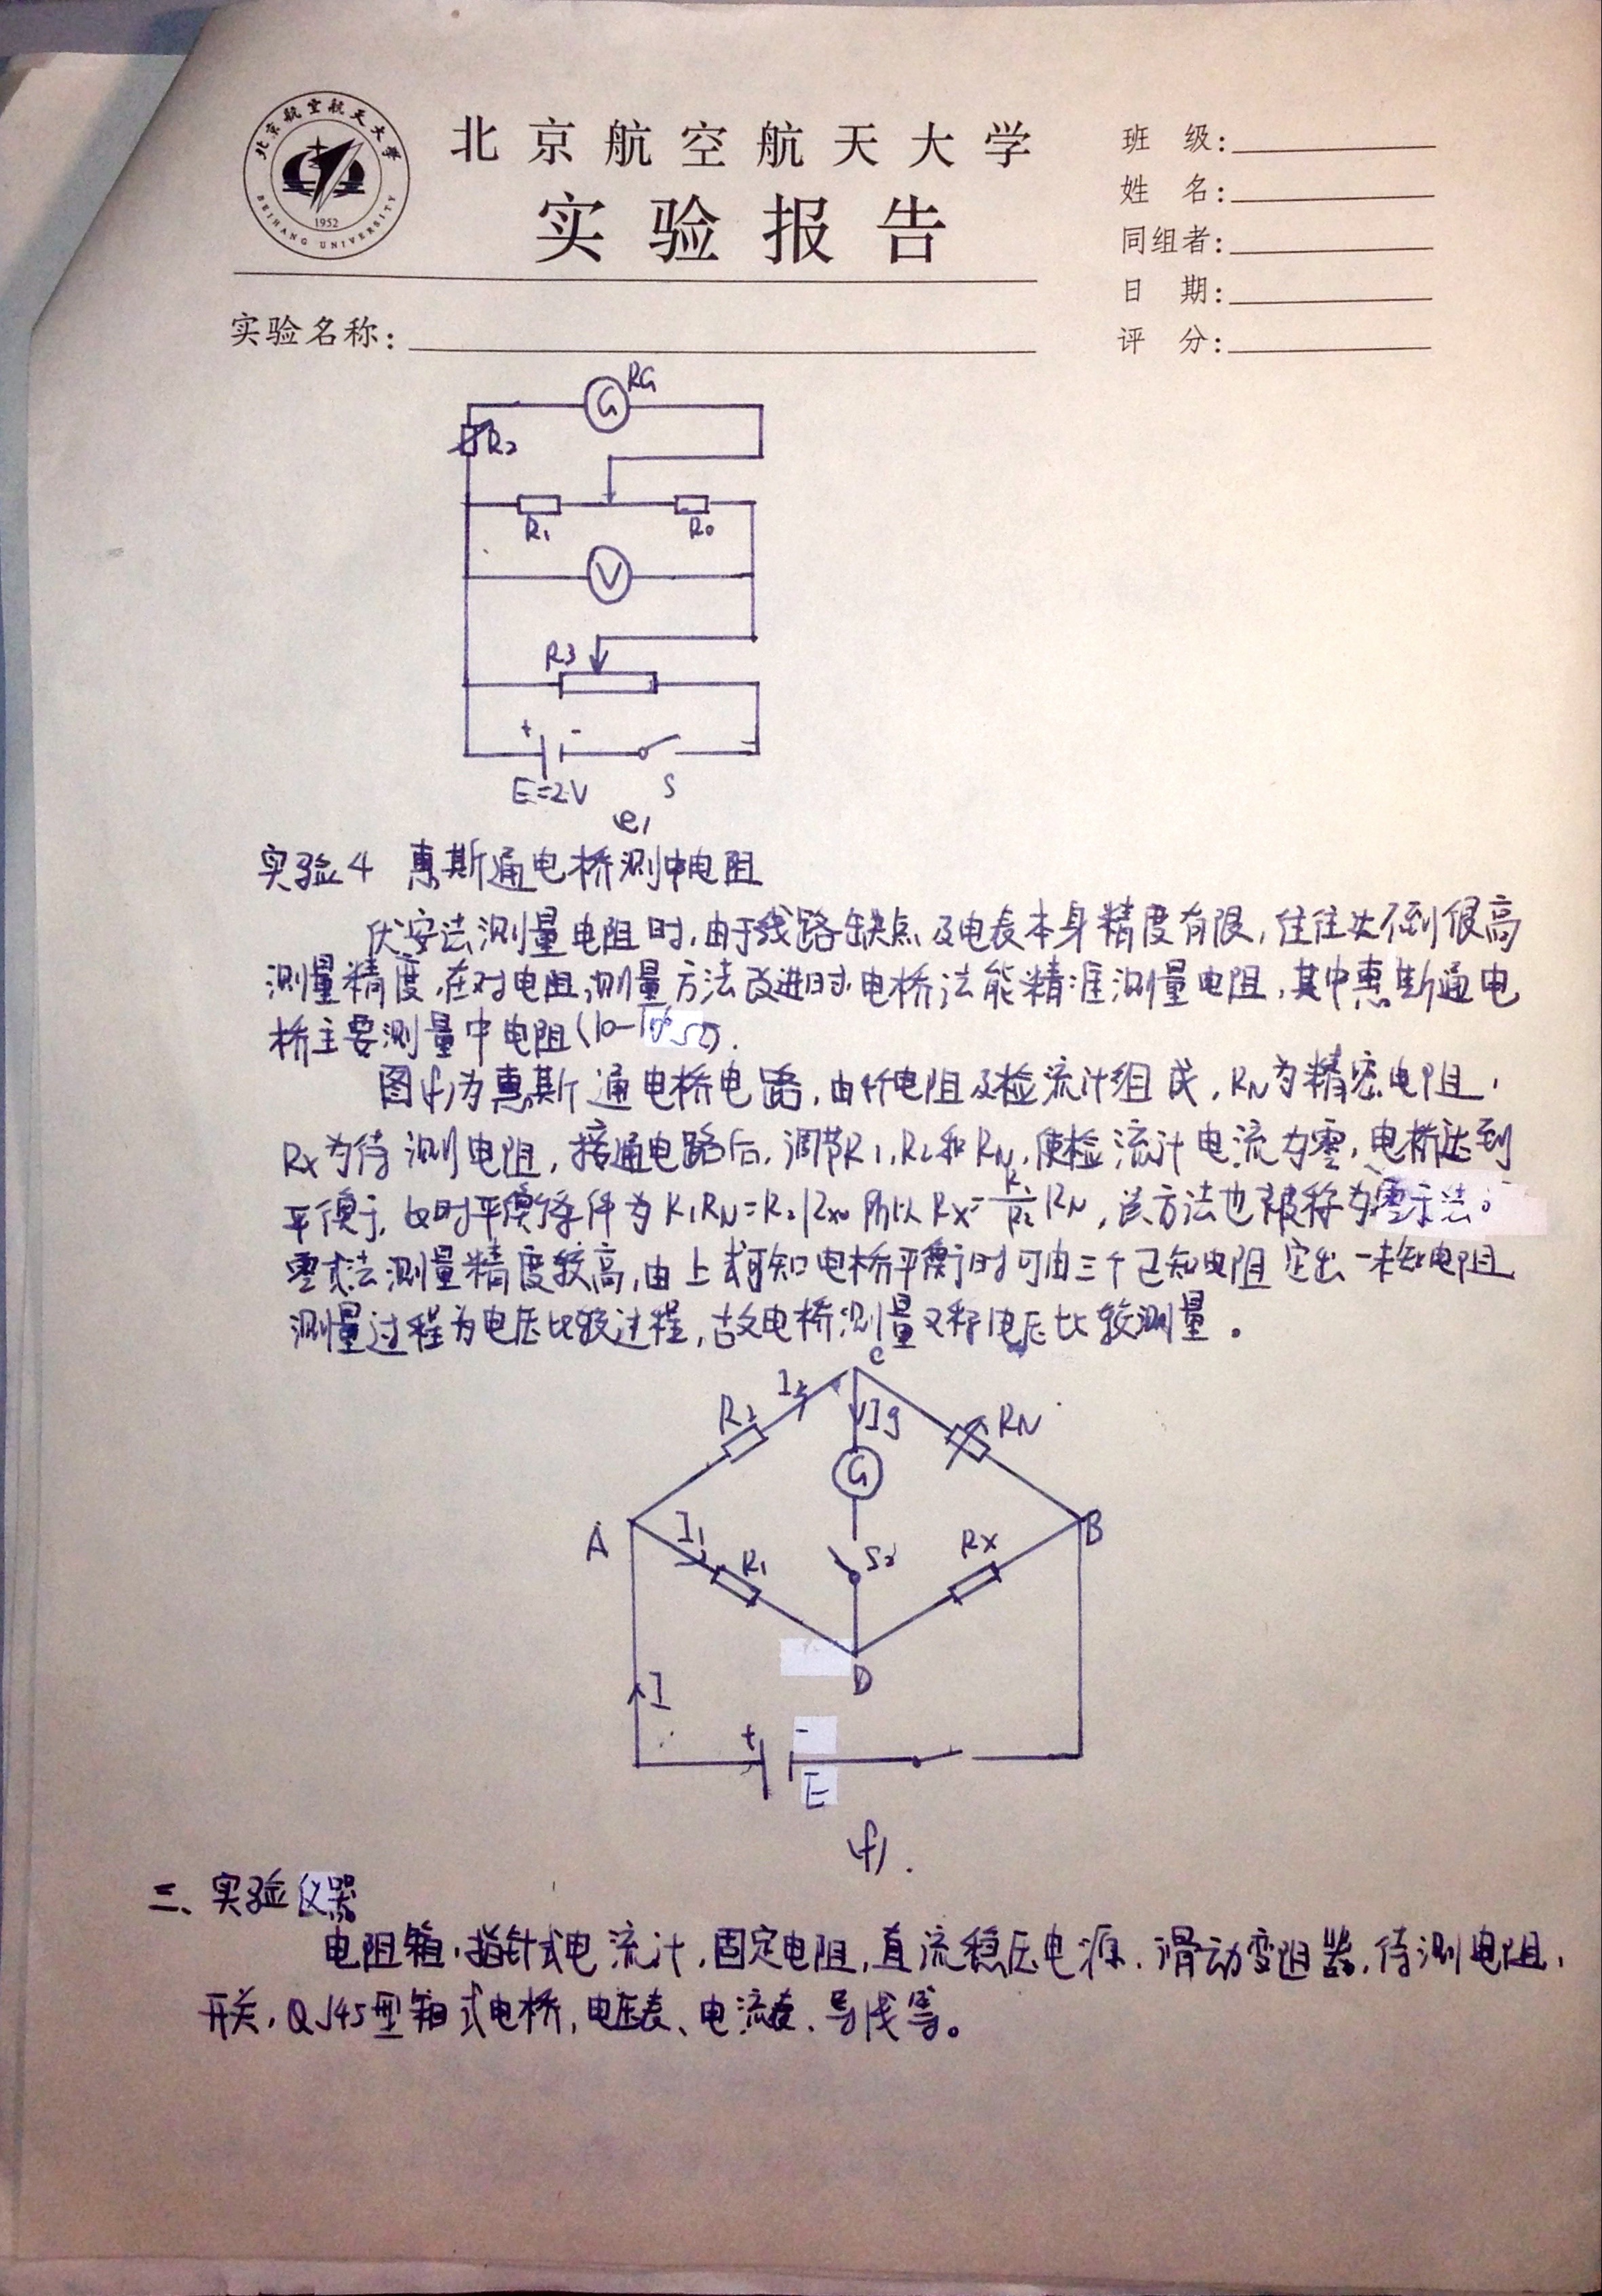 北京航空航天大学
BEIHANG UNIVERSITY
1952
北京航空航天大学
实验报告
班 级:
姓 名:
同组者:
日 期:
评 分:
实验名称:
RG
G
R2
R1
R0
V
R3
+ -
E=2V S
e)
实验4 惠斯通电桥测中电阻
伏安法测量电阻时,由于线路缺点及电表本身精度有限,往往达不到很高
测量精度,在对电阻测量方法改进时,电桥法能精准测量电阻,其中惠斯通电
桥主要测量中电阻(10-10⁶Ω).
图(f)为惠斯通电桥电路,由4个电阻及检流计组成,RN为精密电阻,
Rx为待测电阻,接通电路后,调节R1,R2和RN,使检流计电流为零,电桥达到
平衡,此时平衡条件为R1RN=R2Rx。所以Rx=R1/R2 RN,该方法也被称为零示法。
零式法测量精度较高,由上式可知电桥平衡时可由三个已知电阻定出一未知电阻
测量过程为电压比较过程,故电桥测量又称电压比较测量。
C
I2
R2
Ig
RN
G
A
B
I1
R1
S2
Rx
D
I
+ -
E
(f).
二、实验仪器
电阻箱,指针式电流计,固定电阻,直流稳压电源、滑动变阻器,待测电阻,
开关,QJ45型箱式电桥,电压表、电流表、导线等。